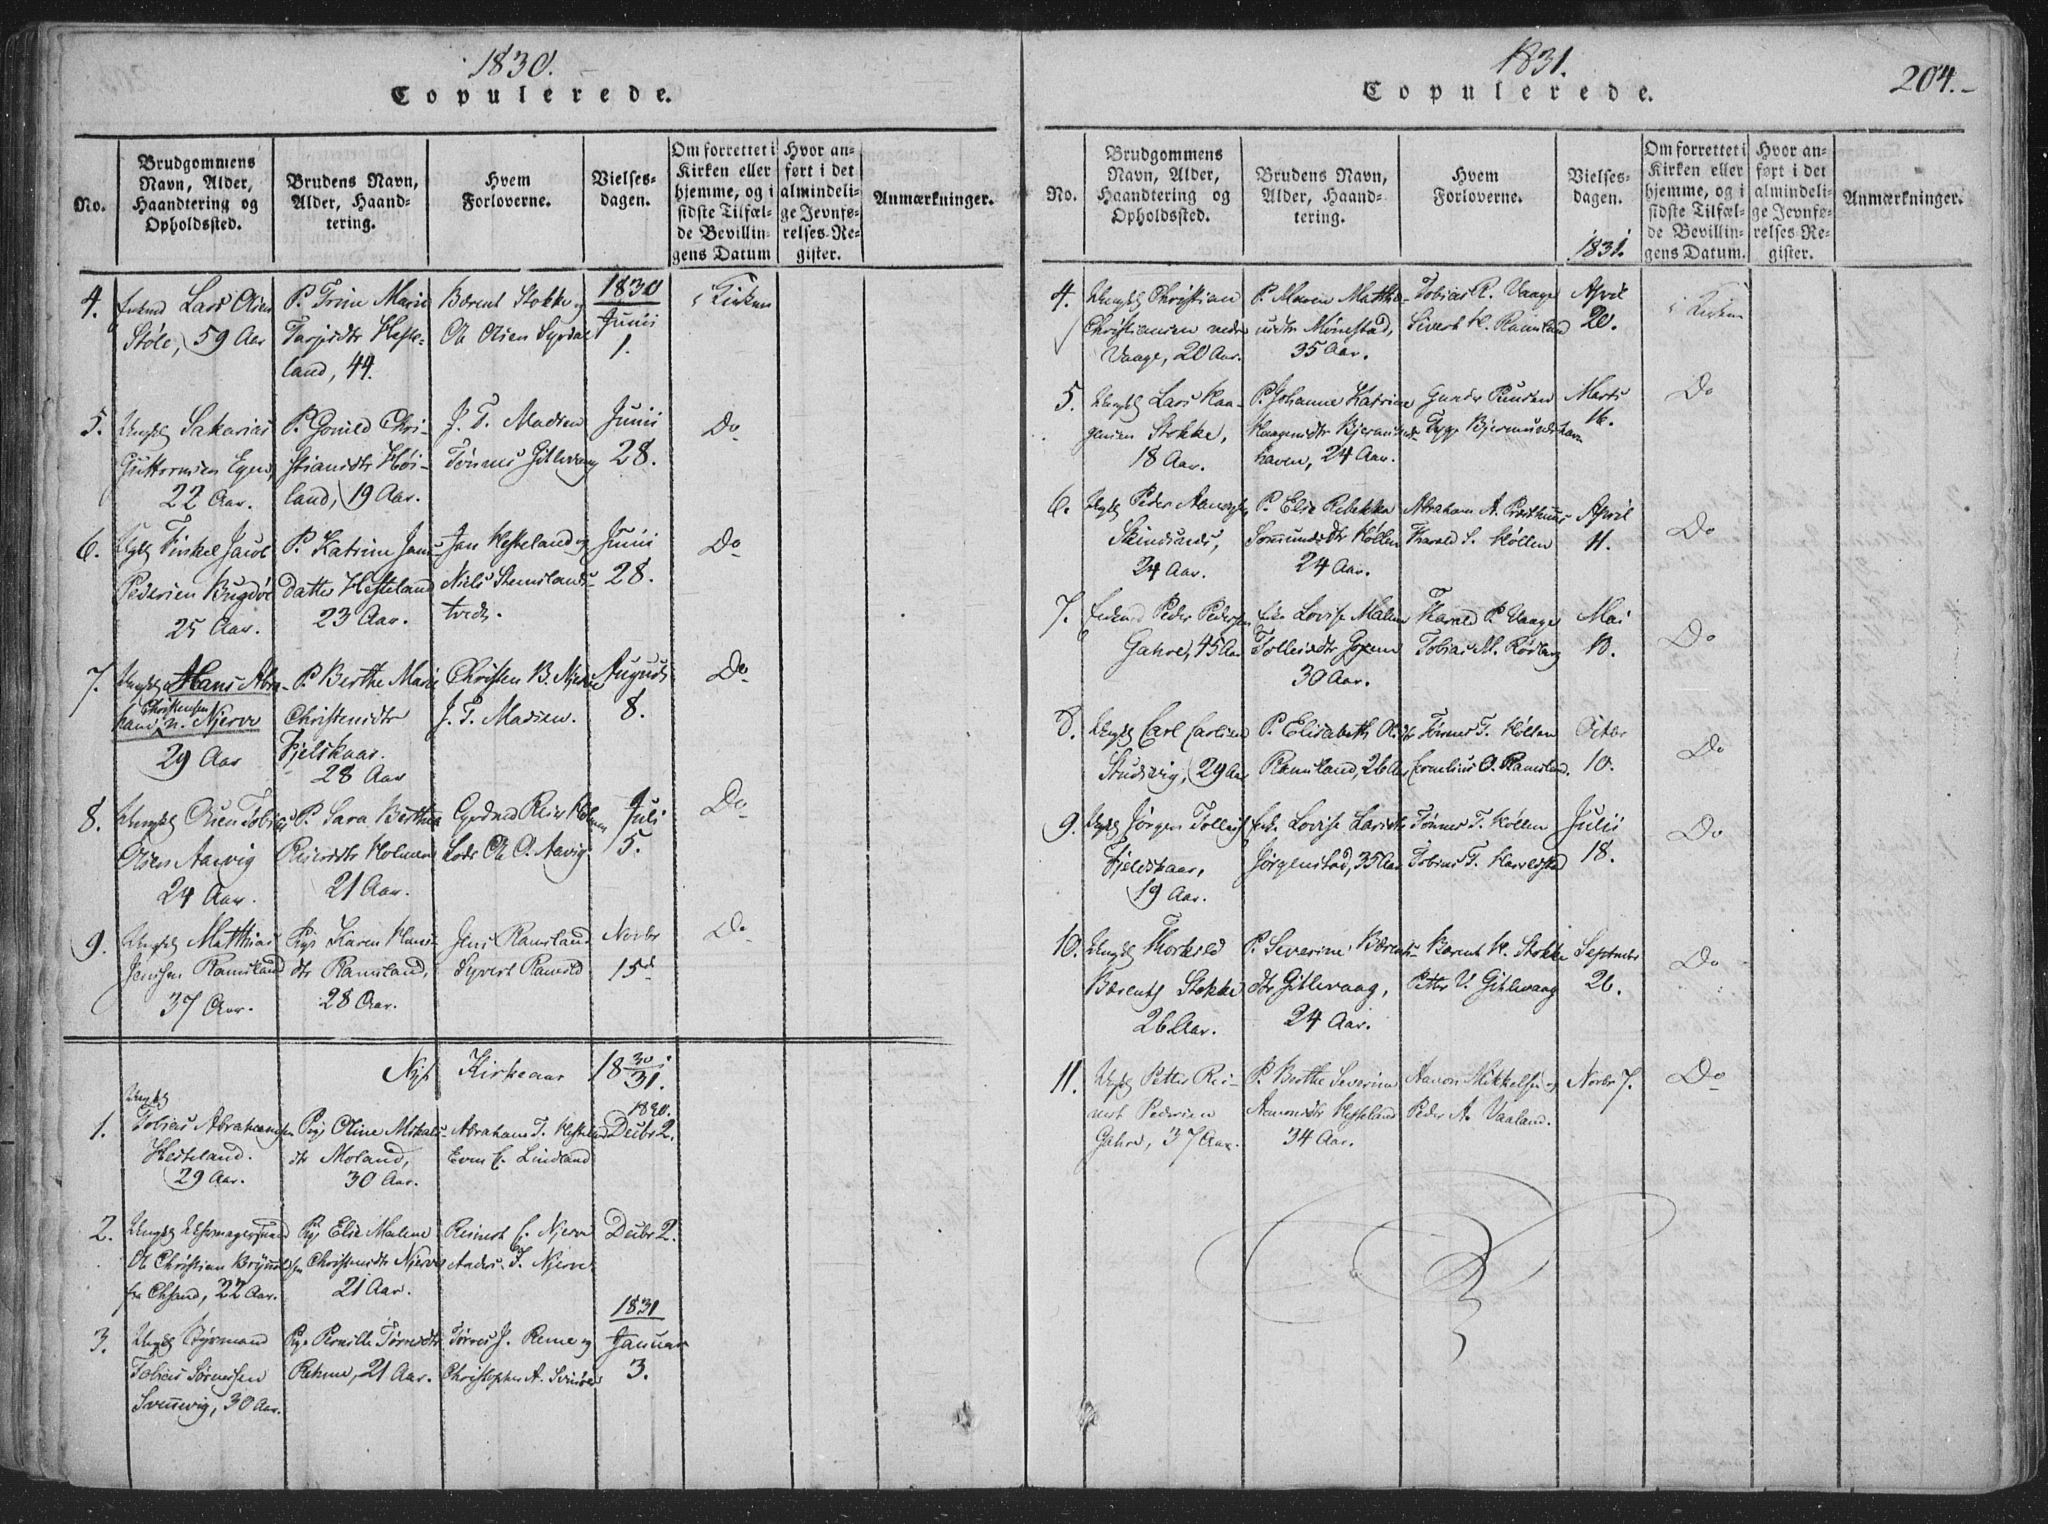 1830.
Copulerede.
No.
Brudgommens
Navn, Alder,
Haandtering og
Opholdssted.
Brudens Navn,
Alder, Haand-
tering.
Hvem
Forloverne.
Vielses-
dagen.
Om forrettet i
Kirken eller
hjemme, og i
sidste Tilfæl-
de Bevillin-
gens Datum
Hvor an-
ført i det
almindeli-
ge Jevnfø-
relses-Re-
gister.
Anmærkninger.
4.
Lars Olsen
Støle, 59 Aar
P. Trine Marie
Tarjesdtr Heste-
land, 44.
Berent Stokke og
Ole Olsen Syrdal
1830
Junii
1.
i Kirken
5.
Ungkl Sakarias
Guttormsen Egen,
22 Aar.
P. Gonild Chri-
stiansdtr Høi-
land, 19 Aar.
J. T. Madsen
Tønnes Gitlevaag
Junii
28.
Do
6.
Jacob
Pedersen
25 Aar.
P. Katrine Jans-
datter Hesteland
23 Aar.
Jan Hesteland og
Niels Stenslands-
tvedt.
Junii
28.
Do
7.
Ungkl Hans Abra-
Christensen
ham n. Njerve
29 Aar
P. Berthe Marie
Christensdtr
Fjelskaar.
28 Aar
Christen B. Njerve
J. T. Madsen.
August
8.
Do
8.
Ungkl Tobias
Olsen Aavig
24 Aar.
P. Sara Berthea
Reiersdtr Holmen
21 Aar.
Reier Holmen
Lods Ole O. Aavig
Juli
5.
Do
9.
Ungkl Matthias
Jenssen Ramsland
37 Aar.
Pige Karen Hans-
dtr Ramsland,
28 Aar.
Jens Ramsland
Syvert Ramsld
Novbr
15d
Do
Nyt Kirkeaar 18 30/31.
1.
Ungkl
Tobias Abrahamsen
Hesteland.
29 Aar.
Pig Oline Mikals-
dtr Moland,
30 Aar.
Abraham T. Hesteland
Even C. Lindland
1830.
Decbr 2.
2.
Ungkl
Ole Christian
fra Chsand, 22 Aar.
Pig Elie Malene
Christensdtr Njerve
21 Aar.
Reinert C. Njerve
og
Anders J. Njerve
Decbr 2.
3.
Ungkl Styrmand
Tobias Sørensen
Svennevig, 30 Aar.
Pige Pernille Tørresdtr
Rehme, 21 Aar.
Tørres J. Reme og
Christopher A. Svinøer
1831
Januar
3.
1831.
Copulerede.
204.
No.
Brudgommens
Navn, Alder,
Haandtering og
Opholdssted.
Brudens Navn,
Alder, Haand-
tering.
Hvem
Forloverne.
Vielses-
dagen.
1831.
Om forrettet i
Kirken eller
hjemme, og i
sidste Tilfæl-
de Bevillin-
gens Datum.
Hvor an-
ført i det
almindeli-
ge Jevnfø-
relses-Re-
gister.
Anmærkninger.
4.
Ungkl Christian
Christiansen nedre
Vaage, 20 Aar.
P. Maren Matthi-
asdtr Mønestad,
35 Aar.
Tobias R. Vaage
Sivert H. Ramsland
April
20.
i Kirken
5.
Ungkl Lars Haa-
gensen Stokke,
18 Aar.
P. Johanne Katrine
Haagensdtr
haven, 24 Aar.
Gunder
Tygge
Marts
16.
Do
6.
Ungkl Peder
Skindsnes,
24 Aar.
P. Elie Rebekka
Kollen
24 Aar.
Abraham A.
Tharald S. Kollen
April
11.
Do
7.
Peder Pedersen
Gahre, 45 Aar
Lovise Malene
Tollefsdtr
30 Aar.
Tharald P. Vaage
Tobias M. Rødberg
Mai
10.
Do
8.
Ungkl Carl Carlsen
29 Aar
P. Elisabeth O.dtr
Ramsland, 26 Aar
Tønnes T. Kollen
Cornelius O. Ramsland.
Octbr
10.
Do
9.
Ungkl Jørgen Tollefs
Fjeldskaar,
19 Aar.
Lovise Larsdtr
Jørgenstad, 35 Aar
Tønnes T. Kollen
Tobias T.
Julii
18.
Do
10.
Ungkl Thorkild
Bærents Stokke
26 Aar.
P. Severine Bærents-
dtr Gitlevaag,
24 Aar.
Barent H. Stokke
Petter V. Gitlevaag
Septmbr
26.
Do
11.
Ungkl Petter Rei-
nert Pedersen
Gahre, 37 Aar.
P. Berthe Severine
Aanonsdtr Hesteland
34 Aar.
Aanon Mikkelsen og
Peder A. Vaaland.
Novbr 7.
Do